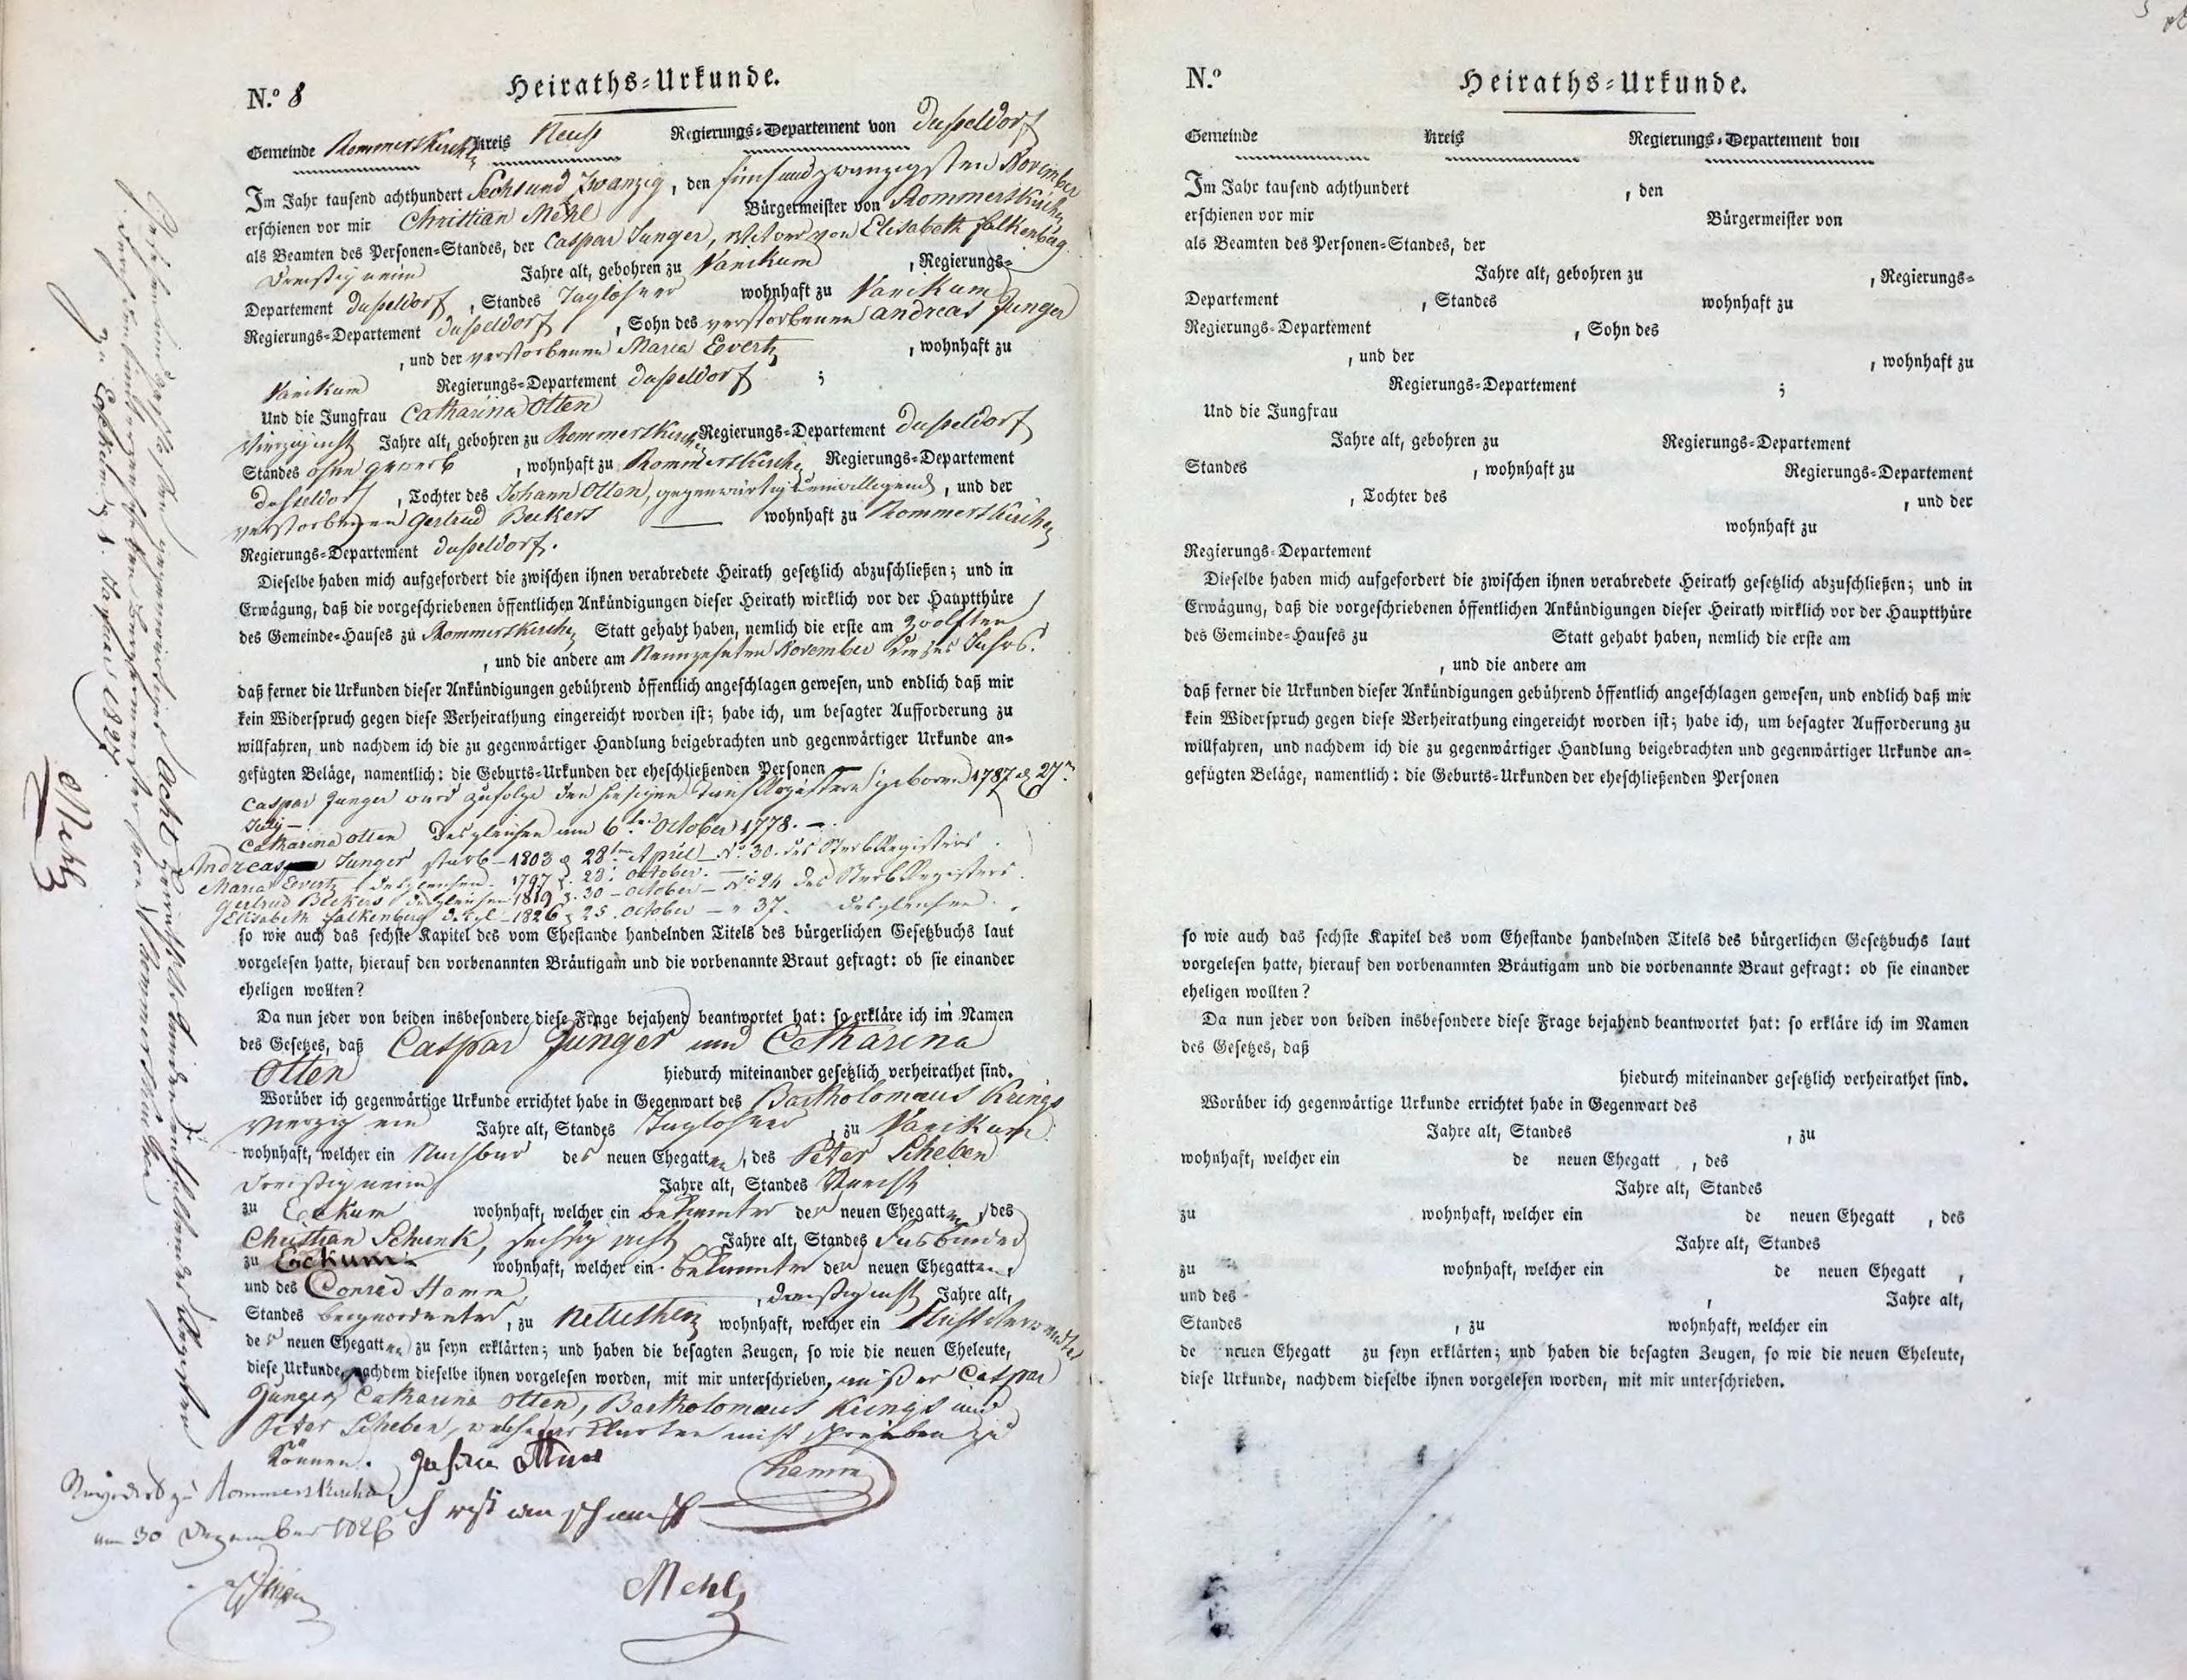 N.º 8 Heiraths=Urkunde.
Gemeinde Rommerskirchen Kreis Neuß Regierungs=Departement von Dußeldorf
Im Jahr tausend achthundert Sechsundzwanzig, den fünfundzwanzigsten November
erschienen vor mir Christian Mehl Bürgermeister von Rommerskirchen
als Beamten des Personen=Standes, der Caspar Junger, Witwer von Elisabeth Falkenberg
Dreißig neun Jahre alt, gebohren zu Vanikum, Regierungs=
Departement Dußeldorf, Standes Taglöhner wohnhaft zu Vanikum
Regierungs=Departement Dußeldorf, Sohn des verstorbenen Andreas Junger
, und der verstorbenen Maria Evertz, wohnhaft zu
Vanikum Regierungs=Departement Dußeldorf ;
Und die Jungfrau Catharina Otten
Vierzig acht Jahre alt, gebohren zu Rommerskirchen Regierungs=Departement Dußeldorf
Standes ohne Gewerb, wohnhaft zu Rommerskirchen Regierungs=Departement
Dußeldorf, Tochter des Johann Otten, gegenwärtig & einwilligend, und der
verstorbenen Gertrud Beckers — wohnhaft zu Rommerskirchen
Regierungs=Departement Dußeldorf.
Dieselbe haben mich aufgefordert die zwischen ihnen verabredete Heirath gesetzlich abzuschließen; und in
Erwägung, daß die vorgeschriebenen öffentlichen Ankündigungen dieser Heirath wirklich vor der Hauptthüre
des Gemeinde=Hauses zu Rommerskirchen Statt gehabt haben, nemlich die erste am zwölften
, und die andere am Neunzehnten November dieses Jahrs.
daß ferner die Urkunden dieser Ankündigungen gebührend öffentlich angeschlagen gewesen, und endlich daß mir
kein Widerspruch gegen diese Verheirathung eingereicht worden ist; habe ich, um besagter Aufforderung zu
willfahren, und nachdem ich die zu gegenwärtiger Handlung beigebrachten und gegenwärtiger Urkunde an=
gefügten Beläge, namentlich: die Geburts=Urkunden der eheschließenden Personen —
Caspar Junger ward zufolge den hiesigen Taufregistern geboren 1787 d 27n
July —
Catharina Otten desgleichen am 6ten October 1778. —
Andreas Junger starb — 1803 d 28ten April — No 30. des SterbRegisters.
Maria Evertz desgleichen 1797 d. 28. October. —
Gertrud Beckers desgleichen 1819 d. 30 — October — No 24 des SterbRegisters.
Elisabeth Falkenberg desgl — 1826 d 25. October — " 37. desgleichen.
so wie auch das sechste Kapitel des vom Ehestande handelnden Titels des bürgerlichen Gesetzbuchs laut
vorgelesen hatte, hierauf den vorbenannten Bräutigam und die vorbenannte Braut gefragt: ob sie einander
eheligen wollten?
Da nun jeder von beiden insbesondere diese Frage bejahend beantwortet hat: so erkläre ich im Namen
des Gesetzes, daß Caspar Junger und Catharina
Otten hiedurch miteinander gesetzlich verheirathet sind.
Worüber ich gegenwärtige Urkunde errichtet habe in Gegenwart des Bartholomaus Krings
Vierzig ein Jahre alt, Standes Taglöhner, zu Vanikum
wohnhaft, welcher ein Nachbar der neuen Ehegatten, des Peter Scheben
Dreißig neun Jahre alt, Standes Knecht
zu Eckum wohnhaft, welcher ein bekannter der neuen Ehegatten, des
Christian Schunk, sechzig acht Jahre alt, Standes Fasbinder
zu Eckum wohnhaft, welcher ein bekannter der neuen Ehegatten,
und des Conrad Hamm, dreißig acht Jahre alt,
Standes beigeordneter, zu Nettesheim wohnhaft, welcher ein Nichtverwandter
der neuen Ehegatten zu seyn erklärten; und haben die besagten Zeugen, so wie die neuen Eheleute,
diese Urkunde, nachdem dieselbe ihnen vorgelesen worden, mit mir unterschrieben, außer Caspar
Junger, Catharina Otten, Bartholomaus Krings und
Peter Scheben, welche erklärten nicht schreiben zu
können.
Hamm
Revidirt zu Rommerskirchen
am 30 Dezember 1826
Mehl
Gesehen und geschlossen gegenwärtiger Acht
zu 1. Januar 1827.
Mehl
N.º Heiraths=Urkunde.
Gemeinde Kreis Regierungs=Departement von
Im Jahr tausend achthundert , den
erschienen vor mir Bürgermeister von
als Beamten des Personen=Standes, der
Jahre alt, gebohren zu , Regierungs=
Departement , Standes wohnhaft zu
Regierungs=Departement , Sohn des
, und der , wohnhaft zu
Regierungs=Departement ;
Und die Jungfrau
Jahre alt, gebohren zu Regierungs=Departement
Standes , wohnhaft zu Regierungs=Departement
, Tochter des , und der
wohnhaft zu
Regierungs=Departement
Dieselbe haben mich aufgefordert die zwischen ihnen verabredete Heirath gesetzlich abzuschließen; und in
Erwägung, daß die vorgeschriebenen öffentlichen Ankündigungen dieser Heirath wirklich vor der Hauptthüre
des Gemeinde=Hauses zu Statt gehabt haben, nemlich die erste am
, und die andere am
daß ferner die Urkunden dieser Ankündigungen gebührend öffentlich angeschlagen gewesen, und endlich daß mir
kein Widerspruch gegen diese Verheirathung eingereicht worden ist; habe ich, um besagter Aufforderung zu
willfahren, und nachdem ich die zu gegenwärtiger Handlung beigebrachten und gegenwärtiger Urkunde an=
gefügten Beläge, namentlich: die Geburts=Urkunden der eheschließenden Personen
so wie auch das sechste Kapitel des vom Ehestande handelnden Titels des bürgerlichen Gesetzbuchs laut
vorgelesen hatte, hierauf den vorbenannten Bräutigam und die vorbenannte Braut gefragt: ob sie einander
eheligen wollten?
Da nun jeder von beiden insbesondere diese Frage bejahend beantwortet hat: so erkläre ich im Namen
des Gesetzes, daß
hiedurch miteinander gesetzlich verheirathet sind.
Worüber ich gegenwärtige Urkunde errichtet habe in Gegenwart des
Jahre alt, Standes , zu
wohnhaft, welcher ein de neuen Ehegatt , des
Jahre alt, Standes
zu wohnhaft, welcher ein de neuen Ehegatt , des
Jahre alt, Standes
zu wohnhaft, welcher ein de neuen Ehegatt ,
und des , Jahre alt,
Standes , zu wohnhaft, welcher ein
de neuen Ehegatt zu seyn erklärten; und haben die besagten Zeugen, so wie die neuen Eheleute,
diese Urkunde, nachdem dieselbe ihnen vorgelesen worden, mit mir unterschrieben.